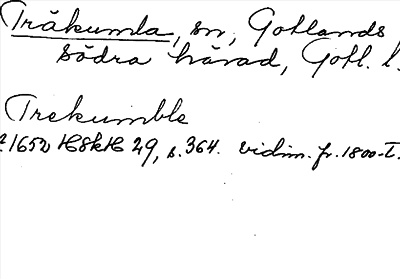 Träkumla, sn, Gotlands
södra härad, Gotl. l.
Trekumble
1652 HSkH 29, s. 364. vidim. fr. 1800-t.